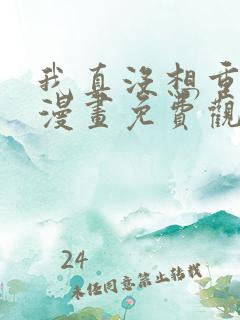 我真沒想重
漫畫免費觀
24
未经同意禁止转载